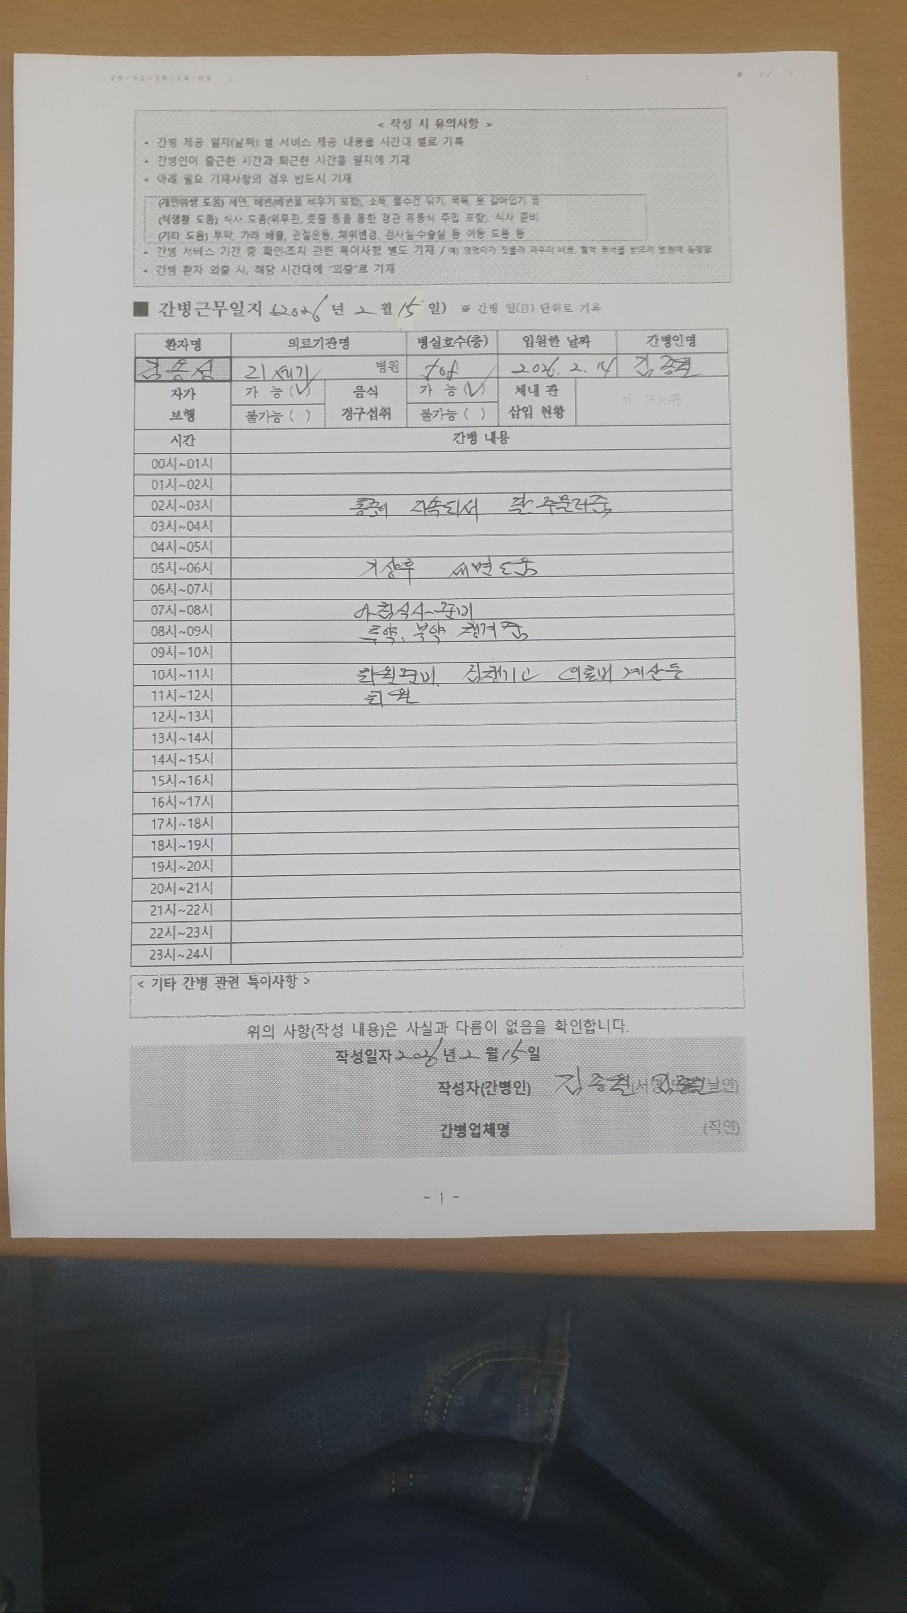 26-02-26;14:03 ;
< 작성 시 유의사항 >
• 간병 제공 일자(날짜) 별 서비스 제공 내용을 시간대 별로 기록
• 간병인이 출근한 시간과 퇴근한 시간을 일지에 기재
• 아래 필요 기재사항의 경우 반드시 기재
(개인위생 도움) 세면, 배변(배변물 비우기 포함), 소독, 물수건 닦기, 목욕, 옷 갈아입기 등
(식생활 도움) 식사 도움(위루관, 콧줄 등을 통한 경관 유동식 주입 포함), 식사 준비
(기타 도움) 투약, 가래 배출, 관절운동, 체위변경, 검사실·수술실 등 이동 도움 등
• 간병 서비스 기간 중 확인·조치 관련 특이사항 별도 기재 / 예)
• 간병 환자 외출 시, 해당 시간대에 "외출"로 기재
■ 간병근무일지 (2026년 2월 15일) ※ 간병 일(日) 단위로 기록
환자명 의료기관명 병실호수(층) 입원한 날짜 간병인명
병원 2026. 2. 14
자가 보행 가 능 (V) 불가능 ( ) 음식 경구섭취 가 능 (V) 불가능 ( ) 체내 관 삽입 현황
시간 간병 내용
00시~01시
01시~02시
02시~03시 통증이 지속되서 팔 주물러줌
03시~04시
04시~05시
05시~06시 기상후 세면도움
06시~07시
07시~08시 아침식사 준비
08시~09시 투약, 복약 챙겨줌
09시~10시
10시~11시 퇴원준비 짐챙기고 의료비 계산등
11시~12시 퇴원
12시~13시
13시~14시
14시~15시
15시~16시
16시~17시
17시~18시
18시~19시
19시~20시
20시~21시
21시~22시
22시~23시
23시~24시
< 기타 간병 관련 특이사항 >
위의 사항(작성 내용)은 사실과 다름이 없음을 확인합니다.
작성일자 2026년 2월 15일
작성자(간병인)
간병업체명 (직인)
- 1 -